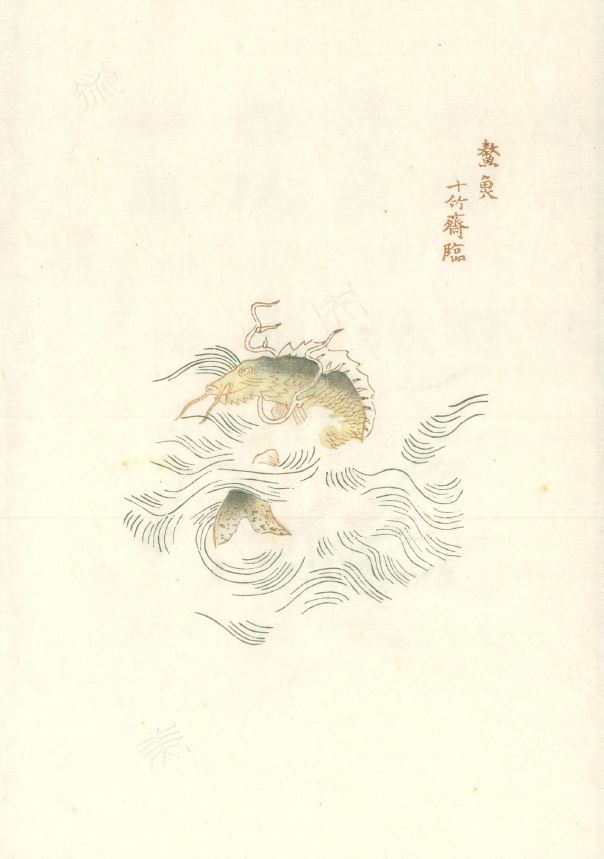 鰲魚
十竹齋臨